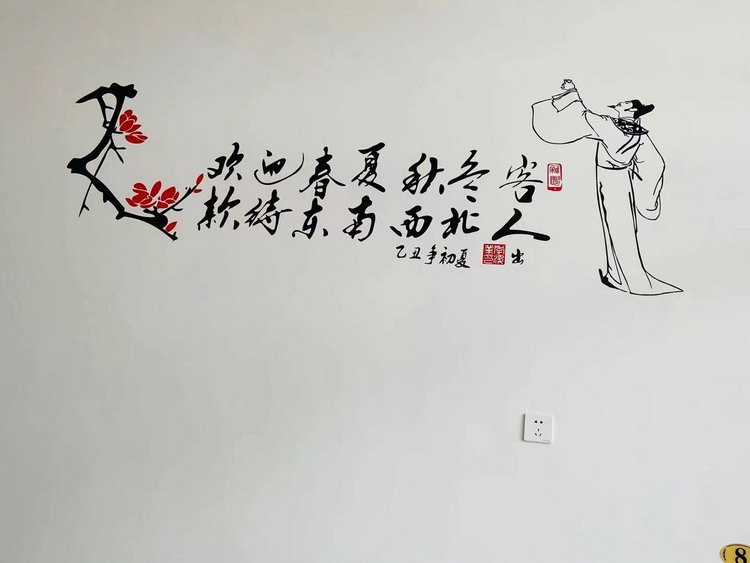 欢迎春夏秋冬客
款待东南西北人
乙丑年初夏 出
8